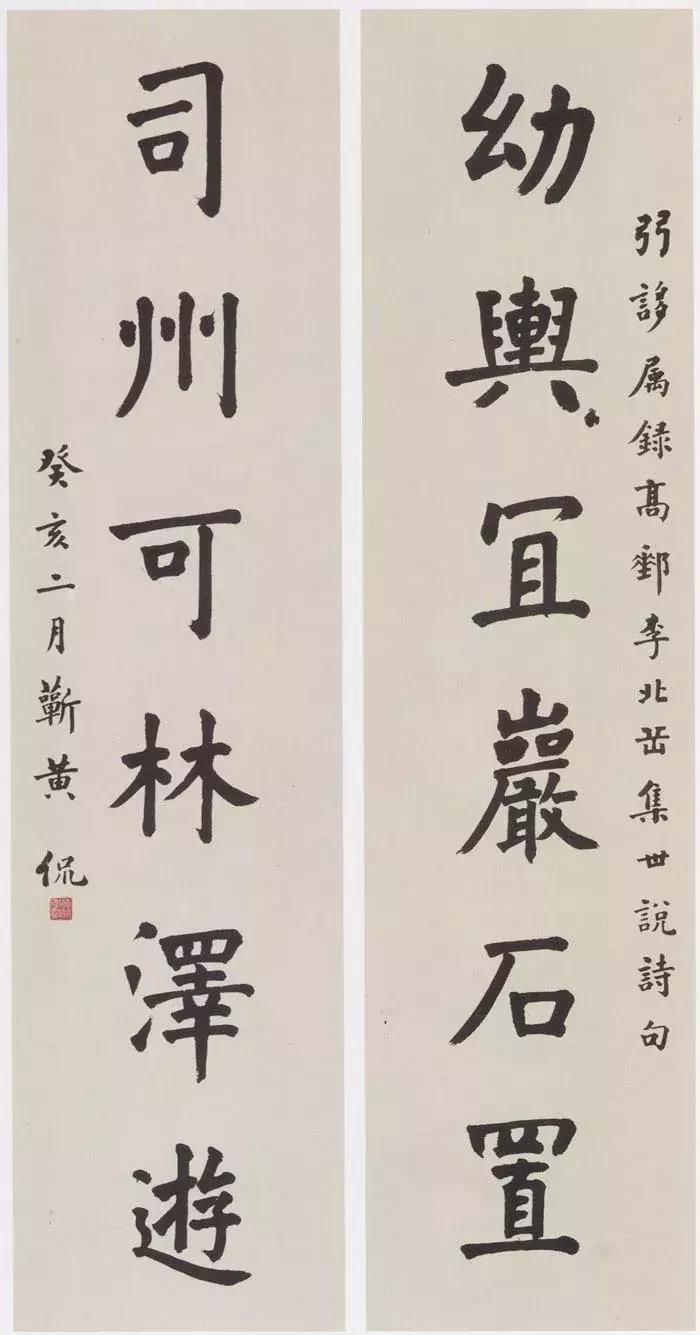 弜誃属録髙郵李北岳集世說詩句
幼輿冝巖石置
司州可林澤遊
癸亥二月蘄黃侃